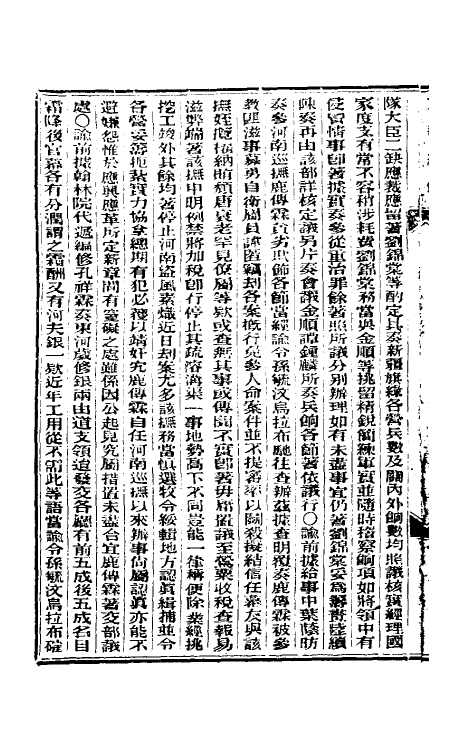 隊大臣二缺應裁應留著劉錦棠等酌定具奏新疆旗綠各營兵數及關內外餉數均照議核實經理國
家度支有常不容稍涉耗費劉錦棠務當與金順等挑留精銳簡練軍實並隨時稽察餉項如將領中有
侵冒情事卽著據實奏參從重治罪餘著照所議分別辦理如有未盡事宜仍著劉錦棠妥爲籌畫陸續
陳奏再由該部詳核定議另片奏會議金順譚鍾麟所奏兵餉各節著依議行〇諭前據給事中葉蔭昉
奏參河南巡撫鹿傳霖貪劣欺飾各節當經諭令孫毓汶烏拉布馳往查辦茲據查明覆奏鹿傳霖被參
教匪滋事募勇自衞屬員諱匿竊劫各案概行免參人命案件並不提審率以鬬殺擬結信任幕友與該
撫姪攬權納賄顏唐衰老罕見僚屬等欵或查無其事或傳聞不實卽著毋庸置議至儀粟收稅查報易
滋弊端著該撫申明例禁將加稅卽行停止其疏溶溝渠一事地勢高下不同豈能一律稱便除業經挑
挖工竣外其餘均著停止河南盜風素熾近日刦案尤多該撫務當愼選牧令綏輯地方認眞緝捕並令
各營妥籌扼紮實力協拿總期有犯必獲以靖奸宄鹿傳霖自任河南巡撫以來辦事尙屬認眞亦能不
避嫌怨惟於應興應革所定新章間有窒礙之處雖係因公起見究屬措置未盡合宜鹿傳霖著交部議
處〇諭前據翰林院代遞編修孔祥霖奏東河歲修銀兩由道支領遣發交各廳有前五成後五成名目
霜降後官幕各有分潤謂之霜酬又有河夫銀一欵近年工用從不需此等語當諭令孫毓汶烏拉布確